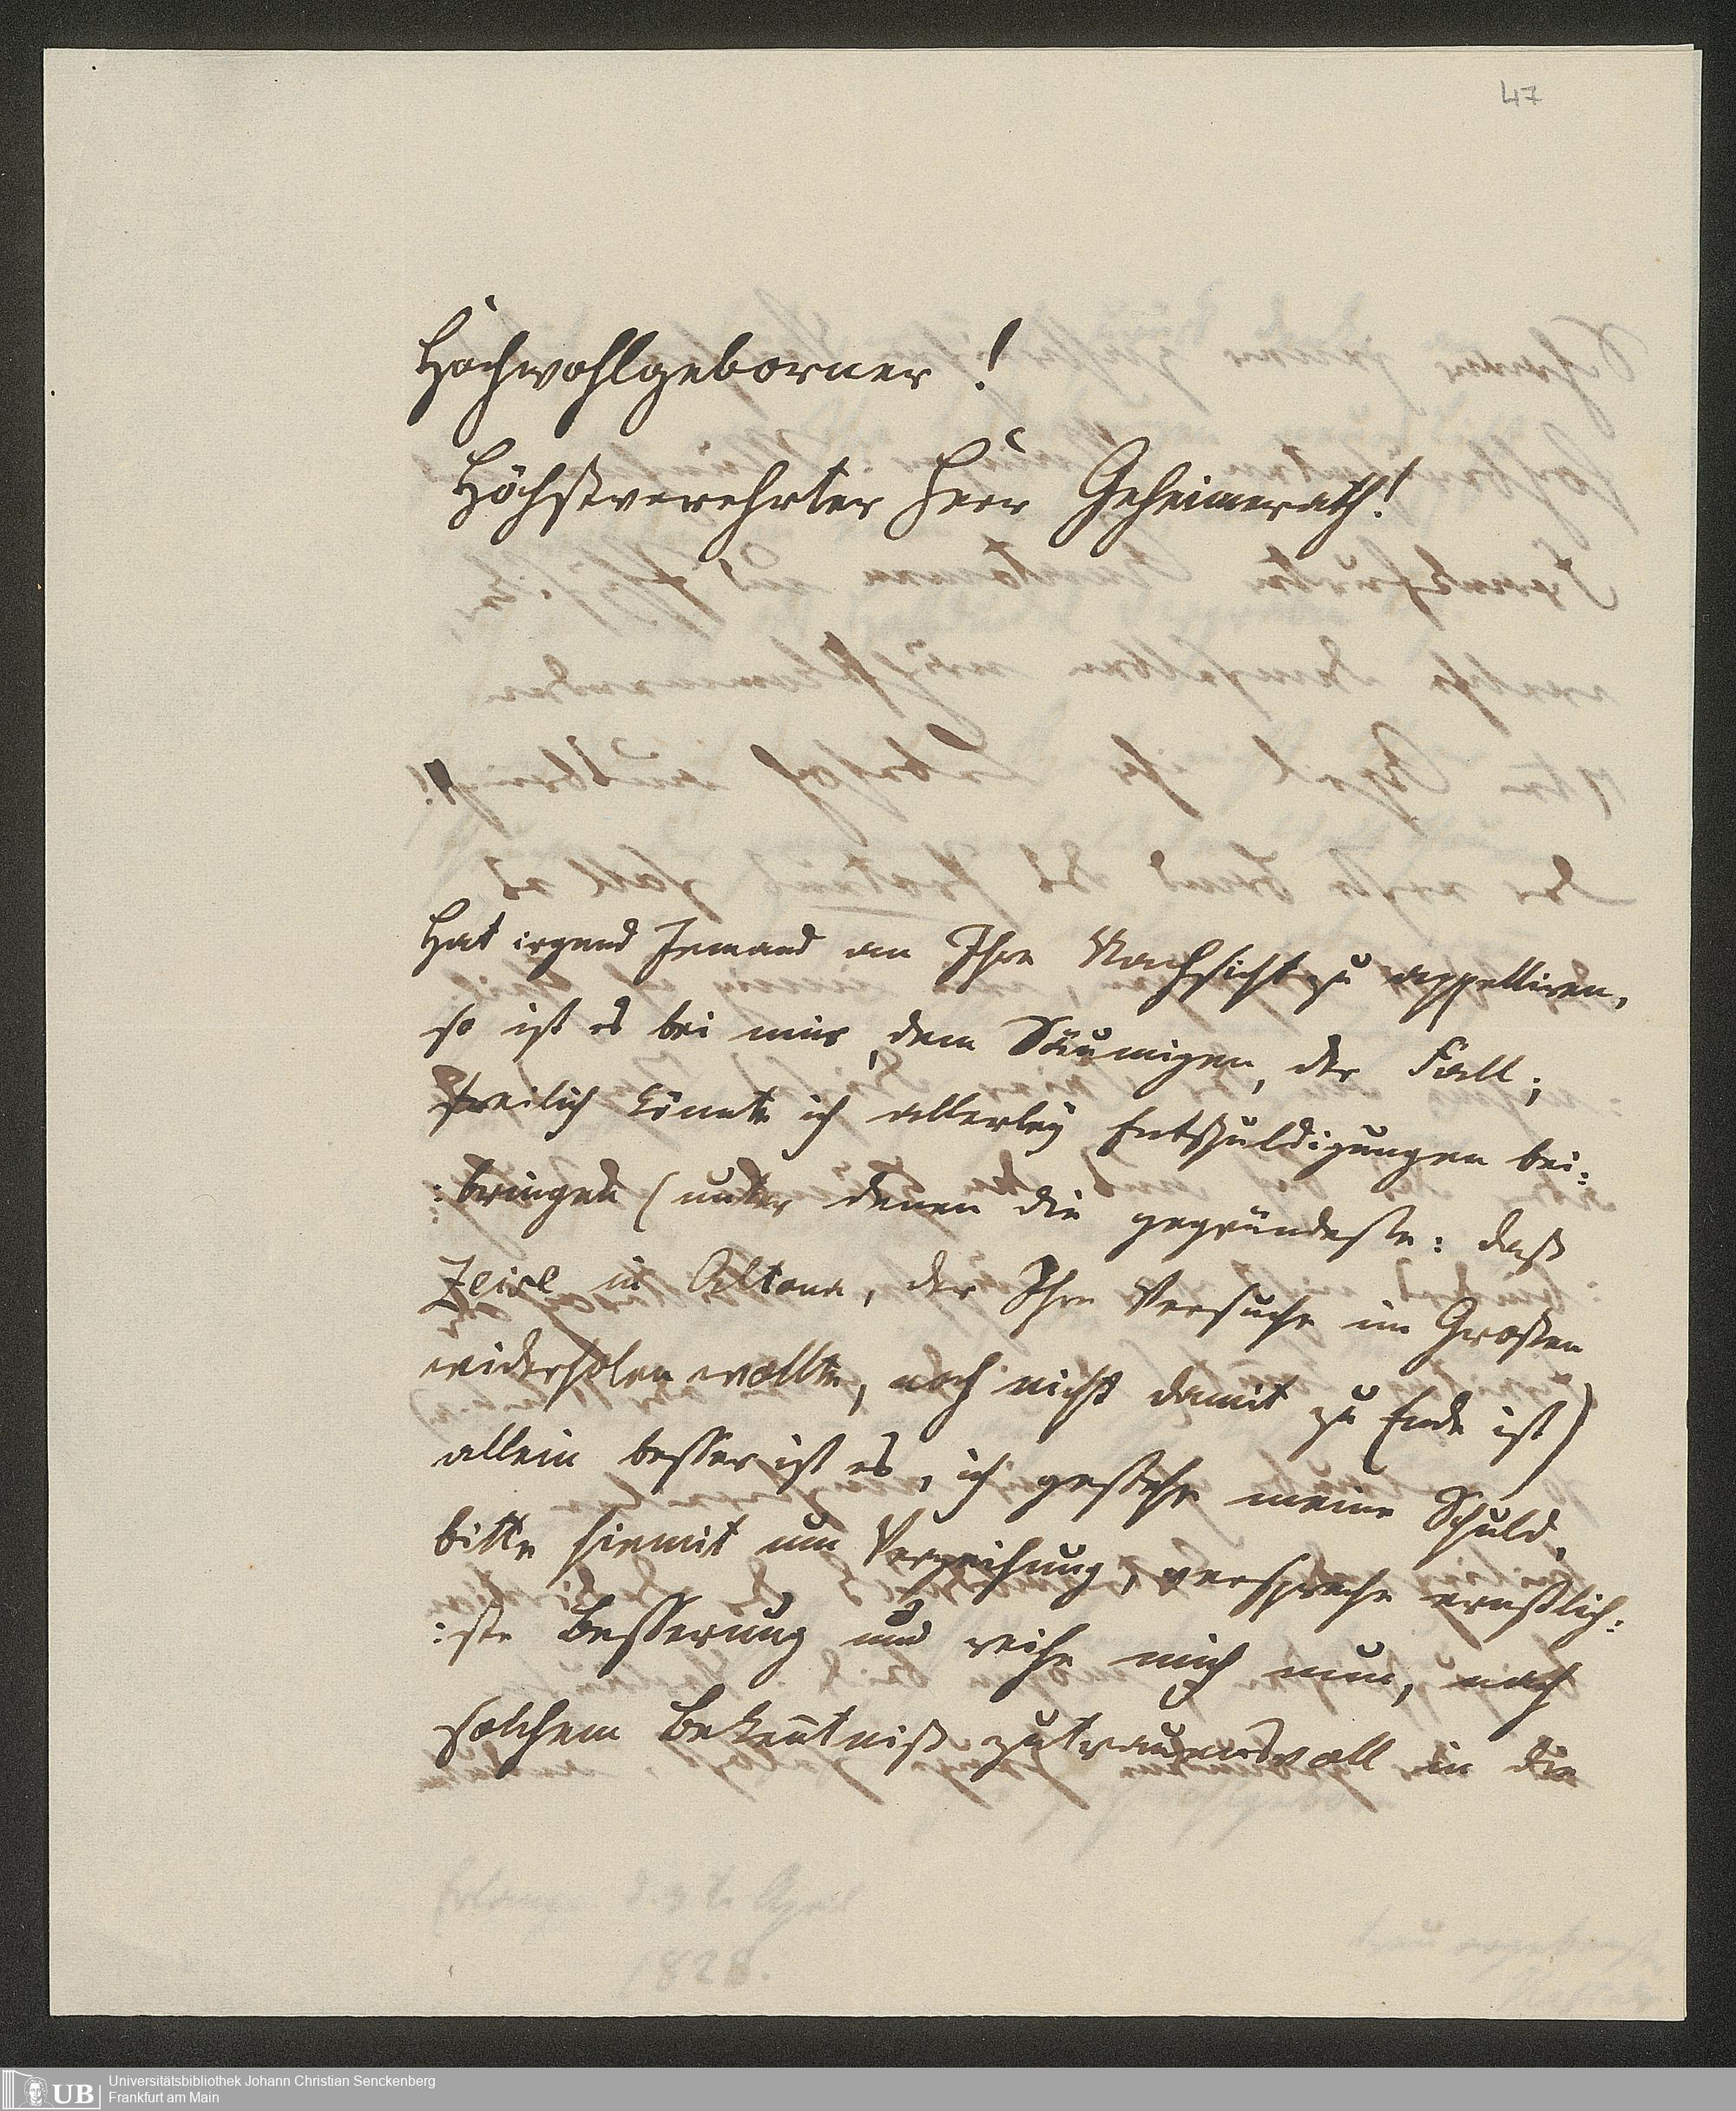 47
Hochwohlgeborner!
Höchstverehrter Herr Geheimerath!
Hat irgend Jemand an Ihre Nachsicht zu appelliren,
so ist es bei mir, dem Säumigen, der Fall;
freilich könnte ich allerley Entschuldigungen bei:
:bringen (unter denen die gegründeste: daß
Zeise in Altona, der Ihre Versuche im Großen
widerholen wollte, noch nicht damit zu Ende ist)
allein besser ist es, ich gestehe meine Schuld,
bitte hiemit um Verzeihung, verspreche ernstlich:
:ste Besserung und reihe mich nun, nach
solchem Bekentniß zutrauensvoll in die
UB
Universitätsbibliothek Johann Christian Senckenberg
Frankfurt am Main